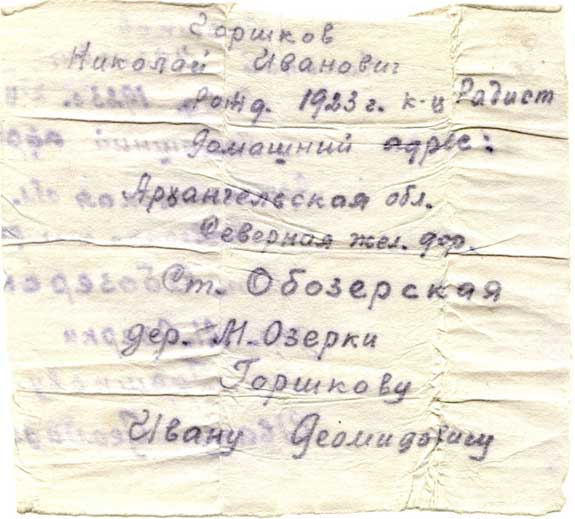 Горшков
Николай Иванович
Рожд. 1923 г. к-ц Радист
Домашний адрес:
Архангельская обл.
Северная жел. дор.
Ст. Обозерская
дер. М. Озерки
Горшкову
Ивану Деомидовичу